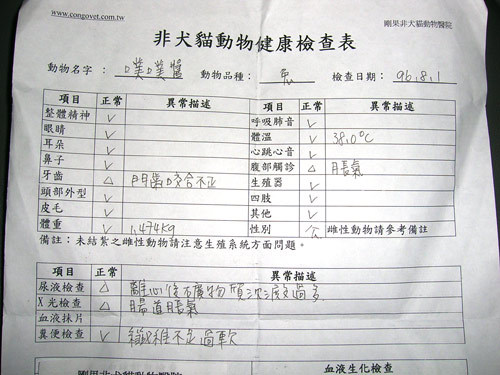 www.congovet.com.tw
剛果非犬貓動物醫院
非犬貓動物健康檢查表
動物名字： 噗噗醬 動物品種： 兔 檢查日期： 96.8.1
項目 正常 異常描述 項目 正常 異常描述
整體精神 ✓ 呼吸肺音 ✓
眼睛 ✓ 體溫 ✓ 38.0°C
耳朵 ✓ 心跳心音 ✓
鼻子 ✓ 腹部觸診 △ 脹氣
牙齒 △ 門齒咬合不正 生殖器 ✓
頭部外型 ✓ 四肢 ✓
皮毛 ✓ 其他 ✓
體重 ✓ 1.474Kg 性別 公 雌性動物請參考備註
備註：未結紮之雌性動物請注意生殖系統方面問題。
項目 正常 異常描述
尿液檢查 △ 離心後礦物質沈澱過多
X光檢查 △ 腸道脹氣
血液抹片
糞便檢查 ✓ 纖維不足過軟
剛果非犬貓動物醫院 血液生化檢查